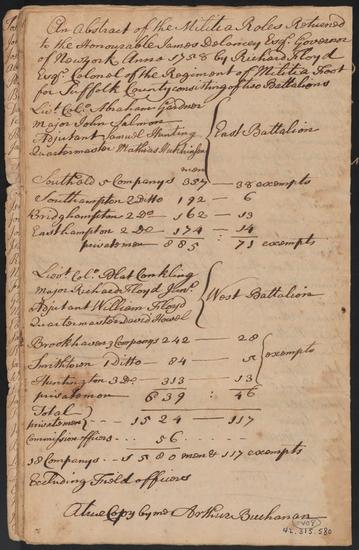 An Abstract of the Militia Roles Returned
to the Honourable James Delancey Esqr. Governor
of Newyork Anno 1758 by Richard Floyd
Esqr. Colonel of the Regement of Militia Foot
for Suffolk County consisting of two Battalions
Lievt Colo. Abraham Gardner
Major John Salmon
Adjutant Samuel Hunting
Quartermaster Mathias Hutchinson
East Battalion
men
Southold 5 Companys 357 — 38 exempts
Southampton 2 Ditto 192 — 6
Bridghampton 2 Do 162 — 13
Easthampton 2 Do 174 — 14
privatemen 885 : 71 exempts
Lievt Colo. Plat Conkling
Major Richard Floyd Junr.
Adjutant William Floyd
Quartermaster David Howel
West Battalion
Brookhaven 3 Companys 242 — 28
Smithtown 1 Ditto — 84 — 5
exempts
Huntington 3 Do — 313 — 13
privatemen 639 : 46
Total
privatemen 1524 — 117
Commission officers . . . 56
18 Companys — 1580 men & 117 exempts
Excluding Field officers
A true Copy by me Arthur Buchanan
42.315.580